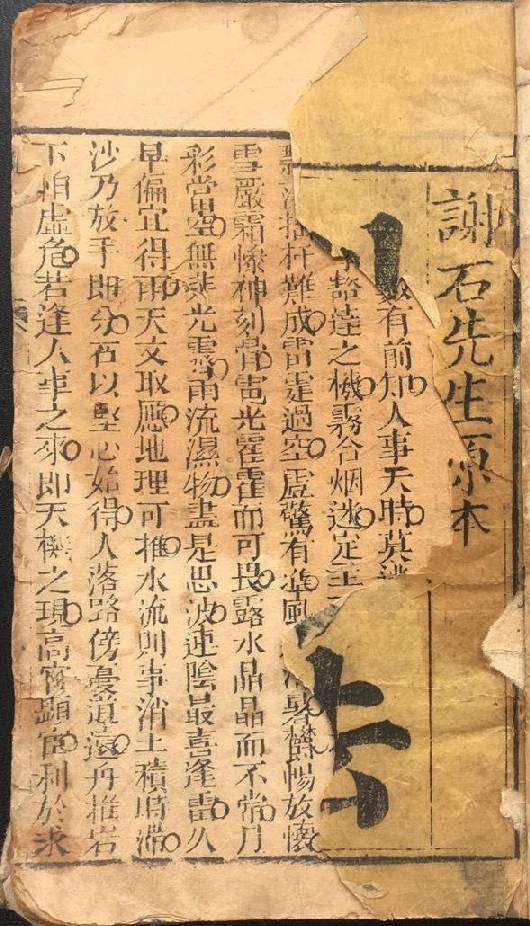 謝石先生原本
數有前知人事天時莫
豁達之機霧合烟迷定主
難成雷霆過空虛驚有准風暑鬱暢放懷
雪嚴霜慘神刻骨電光霍霍而可畏露水晶晶而不常月
彩當空無光雲雨流濕物盡是思波連陰最喜逢晝久
旱偏宜得雨天文取應地理可推水流則事消土積時滯
沙乃放手即分石以堅心始得人落路傍憂道遠舟推岩
下怕虛危若逢人事之來即天機之現高官顯宦利於求